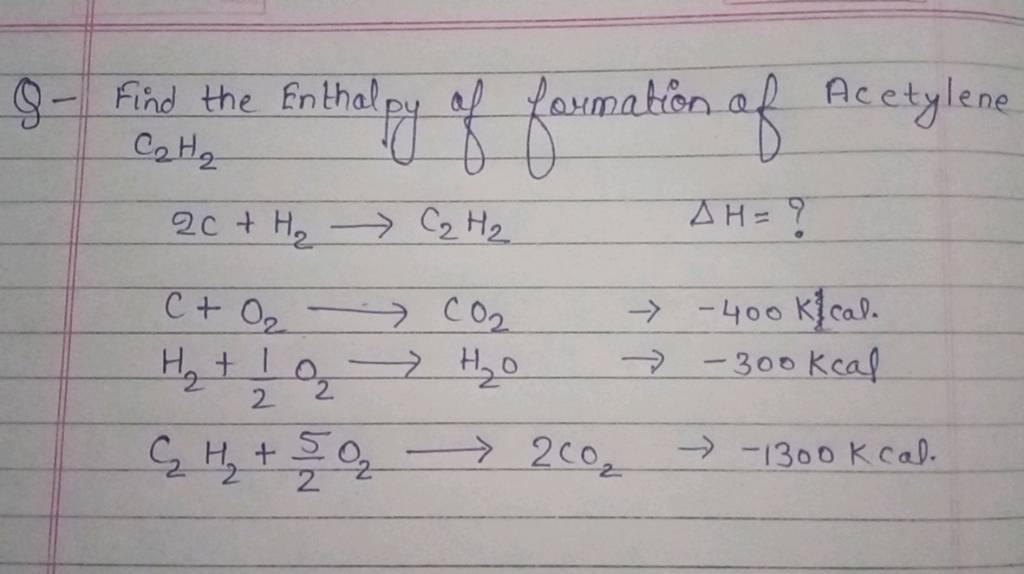 Q- Find the Enthalpy of formation of Acetylene
C₂H₂
2C + H₂ → C₂H₂ ΔH = ?
C + O₂ → CO₂ → -400 Kcal.
H₂ + 1/2 O₂ → H₂O → -300 Kcal
C₂H₂ + 5/2 O₂ → 2CO₂ → -1300 Kcal.